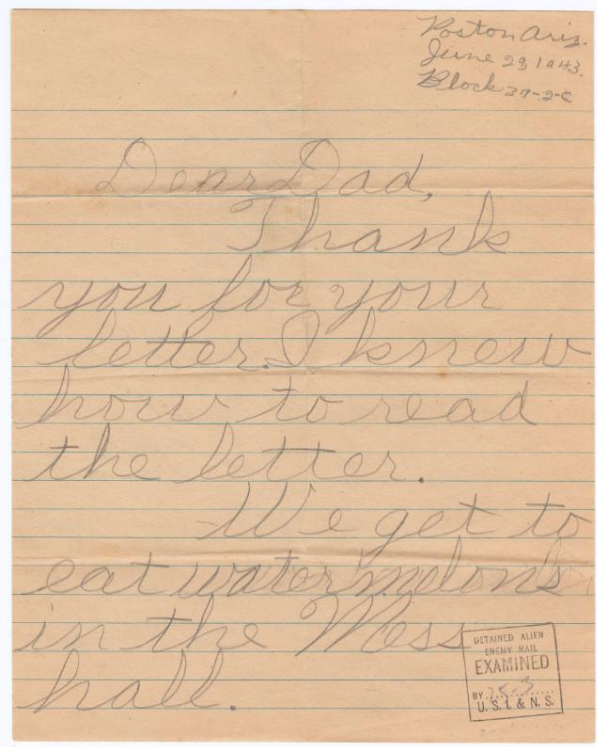 Poston Ariz.
June 29 1943.
Block 37-2-C
Dear Dad,
Thank
you for your
letter. I knew
how to read
the letter.
We get to
eat watermelons
in the Mess
hall.
DETAINED ALIEN
ENEMY MAIL
EXAMINED
BY
U. S. I. & N. S.